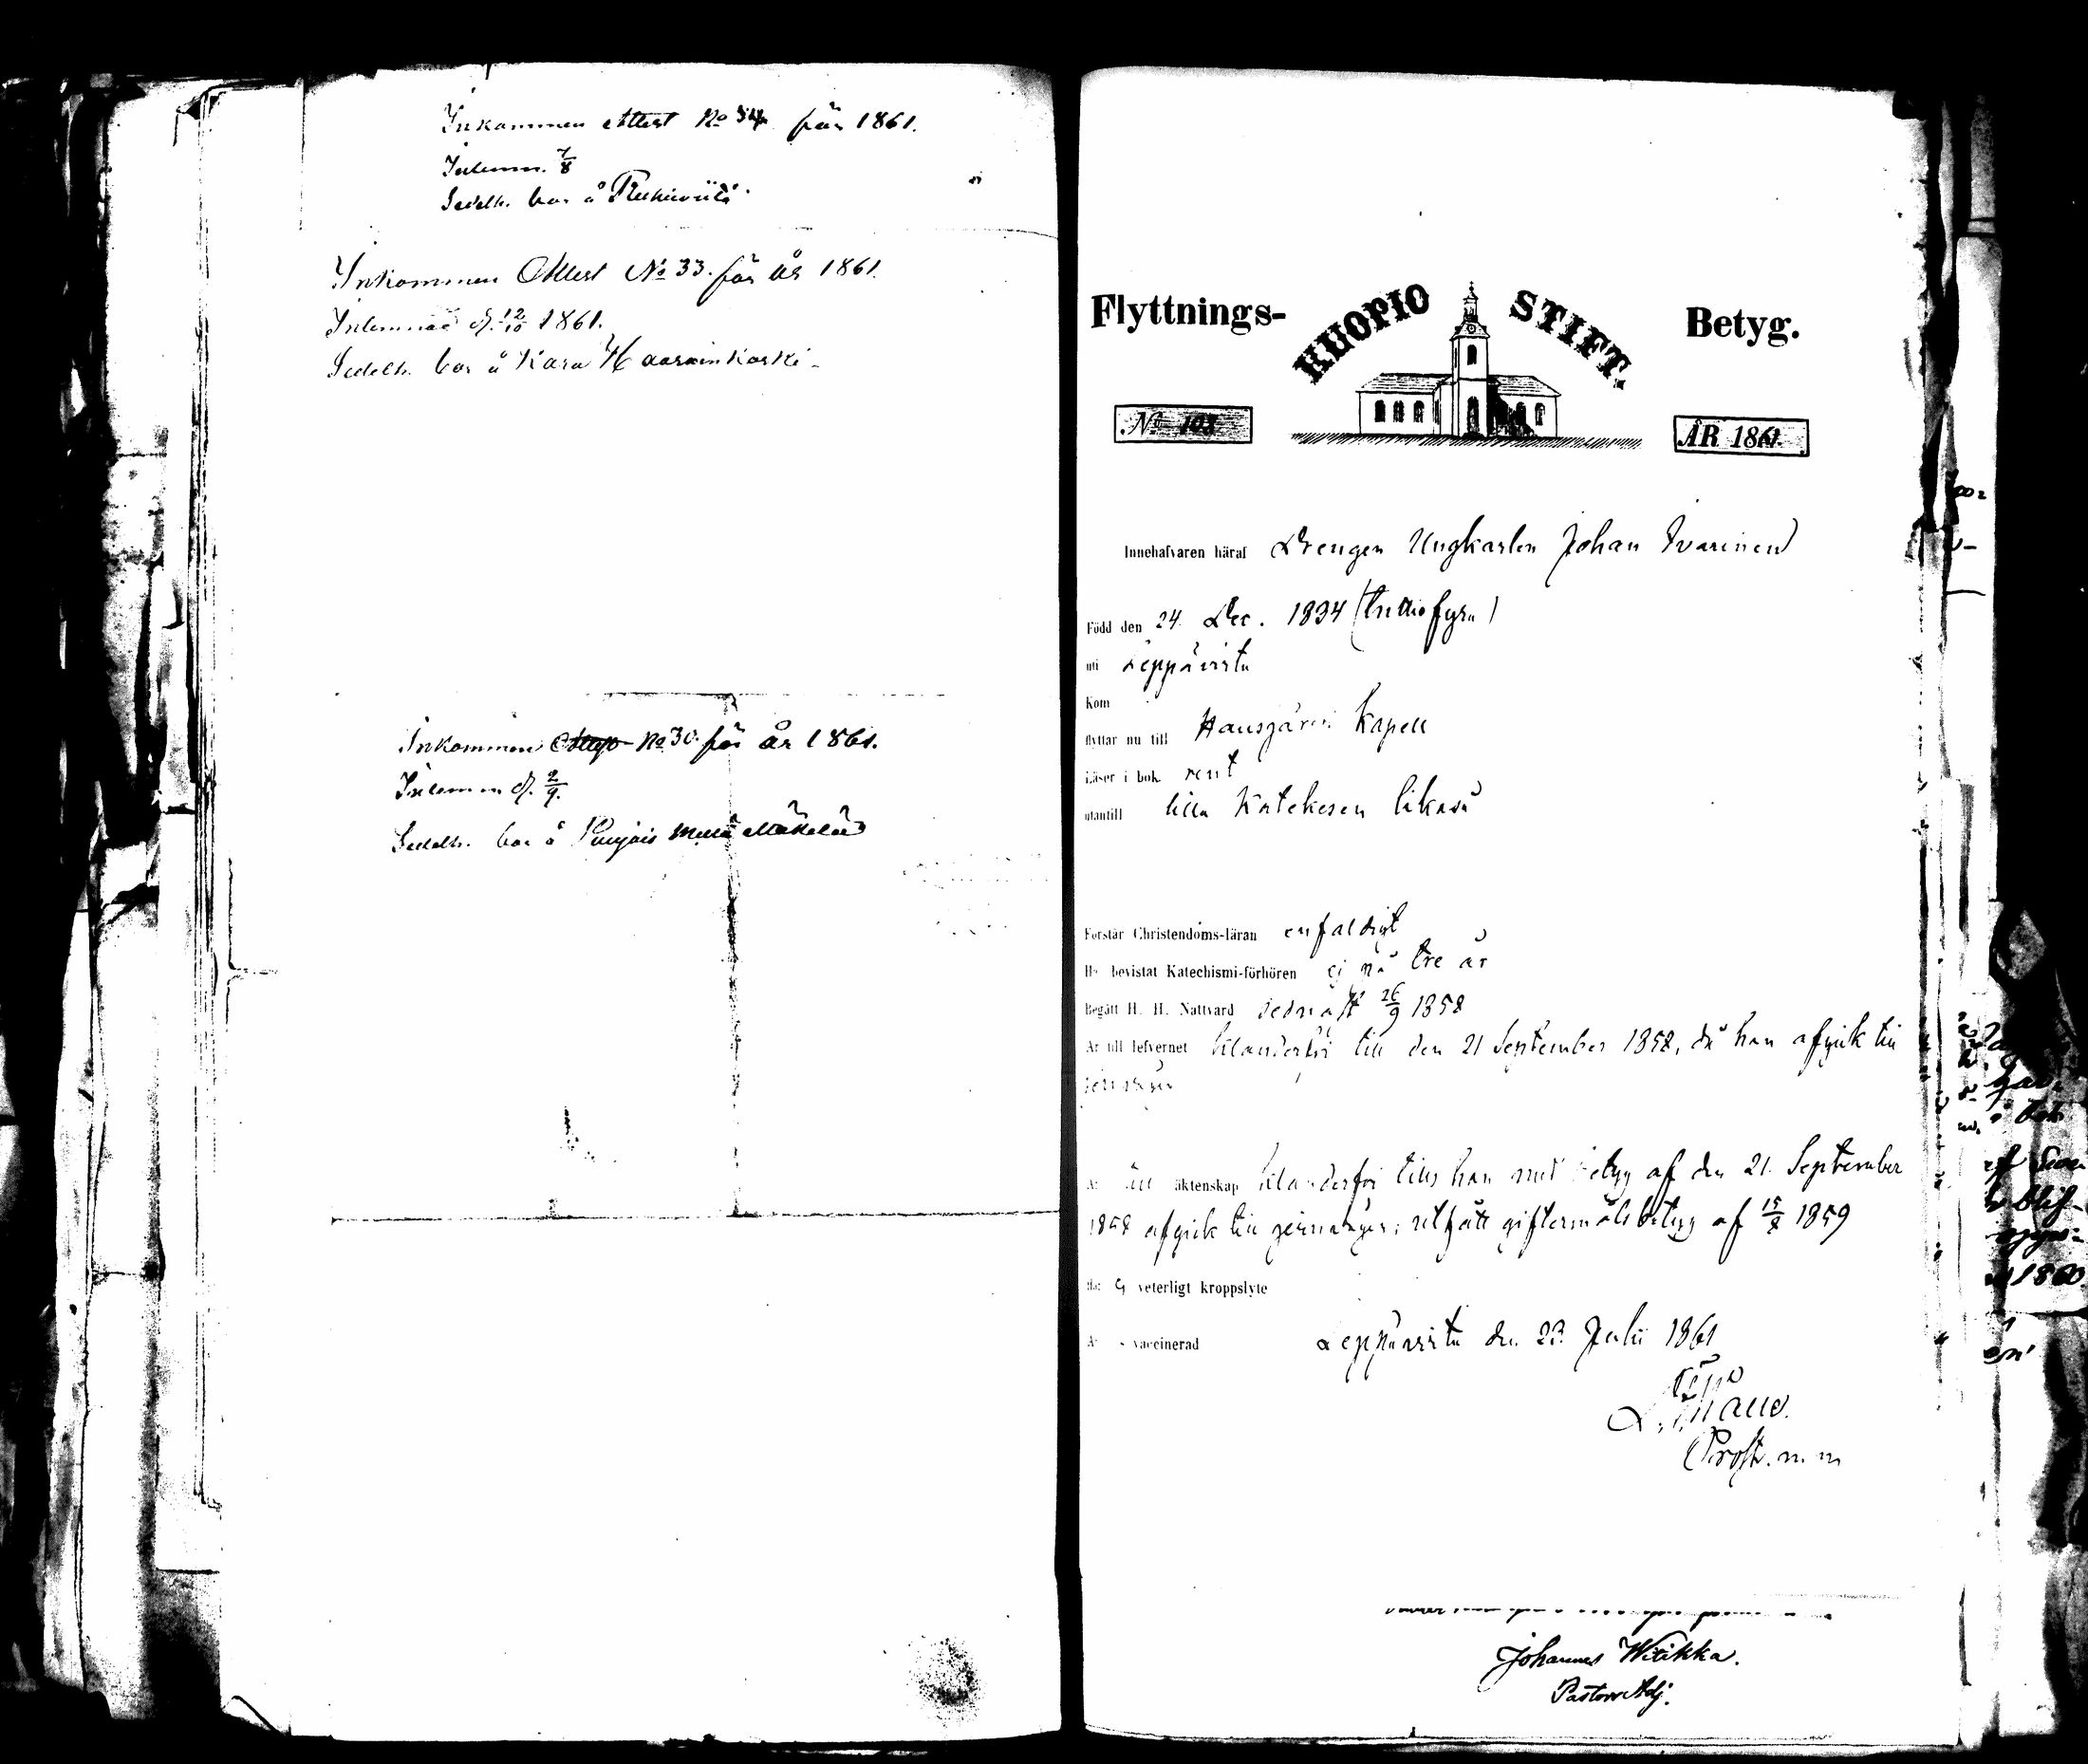 Inkommen Attest No 34 för 1861.
Inlemn. 7/8
Sedelh. bor å
Inkommen Attest No 33. för år 1861.
Inlemnad d. 12/10 1861.
Sedelh. bor å Kara Haarainkoski
Inkommen No 30. för år 1861.
Inlemn d. 2/9.
Sedelh. bor å Mäkelä
Flyttnings- KUOPIO STIFT. Betyg.
No 103 ÅR 1861.
Innehafvaren häraf Drengen Ungkarlen Johan Ivarinen
Född den 24. Dec. 1834 (trettiofyra)
uti Leppävirta
Kom
flyttar nu till Hausjärvi Kapell
Läser i bok rent
utantill lilla Katekesen likaså
Förstår Christendoms-läran enfaldigt
Ha bevistat Katechismi-förhören ej på tre år
Begått H. H. Nattvard sednast 26/9 1858
Är till lefvernet klanderfri till den 21 September 1858, då han afgick till
Är till äktenskap klanderfri tills han med betyg af den 21. September
1858 afgick till; utfått giftermålsbetyg af 15/8 1859
Har ej veterligt kroppslyte
Är vaccinerad Leppävirta den 23. Julii 1861
Prost. m. m
Johannes Witikka.
Pastors Adj.